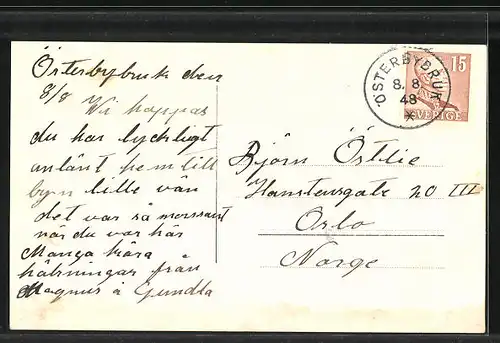 Österbybruk den
8/8 Vi hoppas
du har lyckligt
anlänt hem till
byn lille vän
det var så morssamt
när du var här
Många kära
hälsningar från
Magnus å Gundla
ÖSTERBYBRUK
8. 8.
48
15
SVERIGE
Björn Östlie
20 III
Oslo
Norge